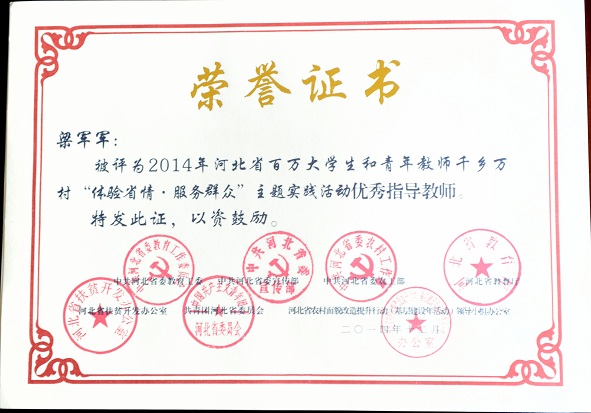 荣誉证书
梁军军：
被评为2014年河北省百万大学生和青年教师千乡万
村“体验省情·服务群众”主题实践活动优秀指导教师。
特发此证，以资鼓励。
中共河北省委教育工委 中共河北省委宣传部 中共河北省委农工部 河北省教育厅
河北省扶贫开发办公室 共青团河北省委员会 河北省农村面貌改造提升行动（基层建设年活动）领导小组办公室
二〇一四年十二月